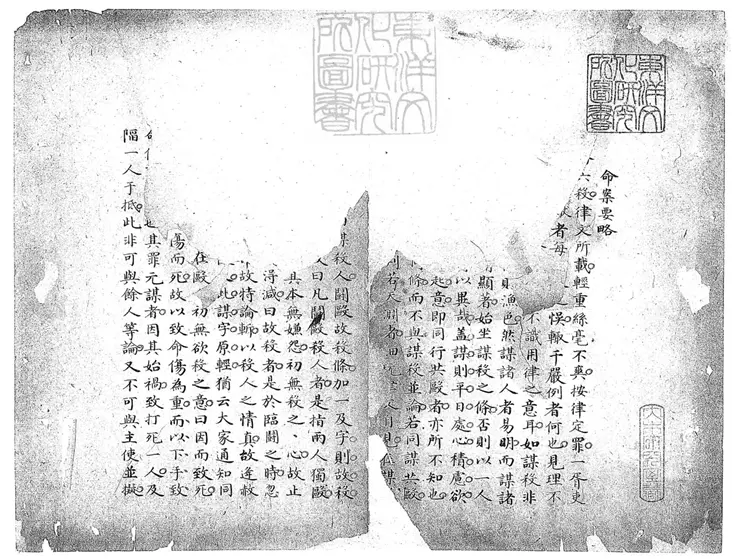 東洋文
化研究
所圖書
東洋文
化研究
所圖書
命案要略
六殺律文所載輕重絲毫不爽按律定罪一胥吏
者每之悞輒干嚴例者何也見理不
不識用律之意耳如謀殺非
則漁色然謀諸人者易明而謀諸
顯者始坐謀殺之條否則以一人
以異哉蓋謀則平日處心積慮欲
起意即同行共毆者亦所不知也
條而不與謀殺並論若同謀共毆
則若
謀殺人鬬毆故殺條加一及字則故殺
曰凡鬬毆殺人者是指兩人獨毆
其本無嫌怨初無殺之心故止
得減曰故殺者是於臨鬬之時忽
故特論斬以殺人之情真故逢赦
此謀字原輕猶云大家通知同
在毆初無欲殺之意曰因而致死
傷而死故以致命傷為重而以下手致
也其罪元謀者因其始禍致打死一人及
一人于抵此非可與餘人等論又不可與主使並擬